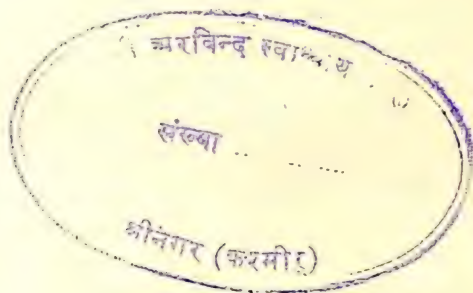 अरविन्द स्वाध्याय
संख्या .. ......
श्रीनगर (कश्मीर)